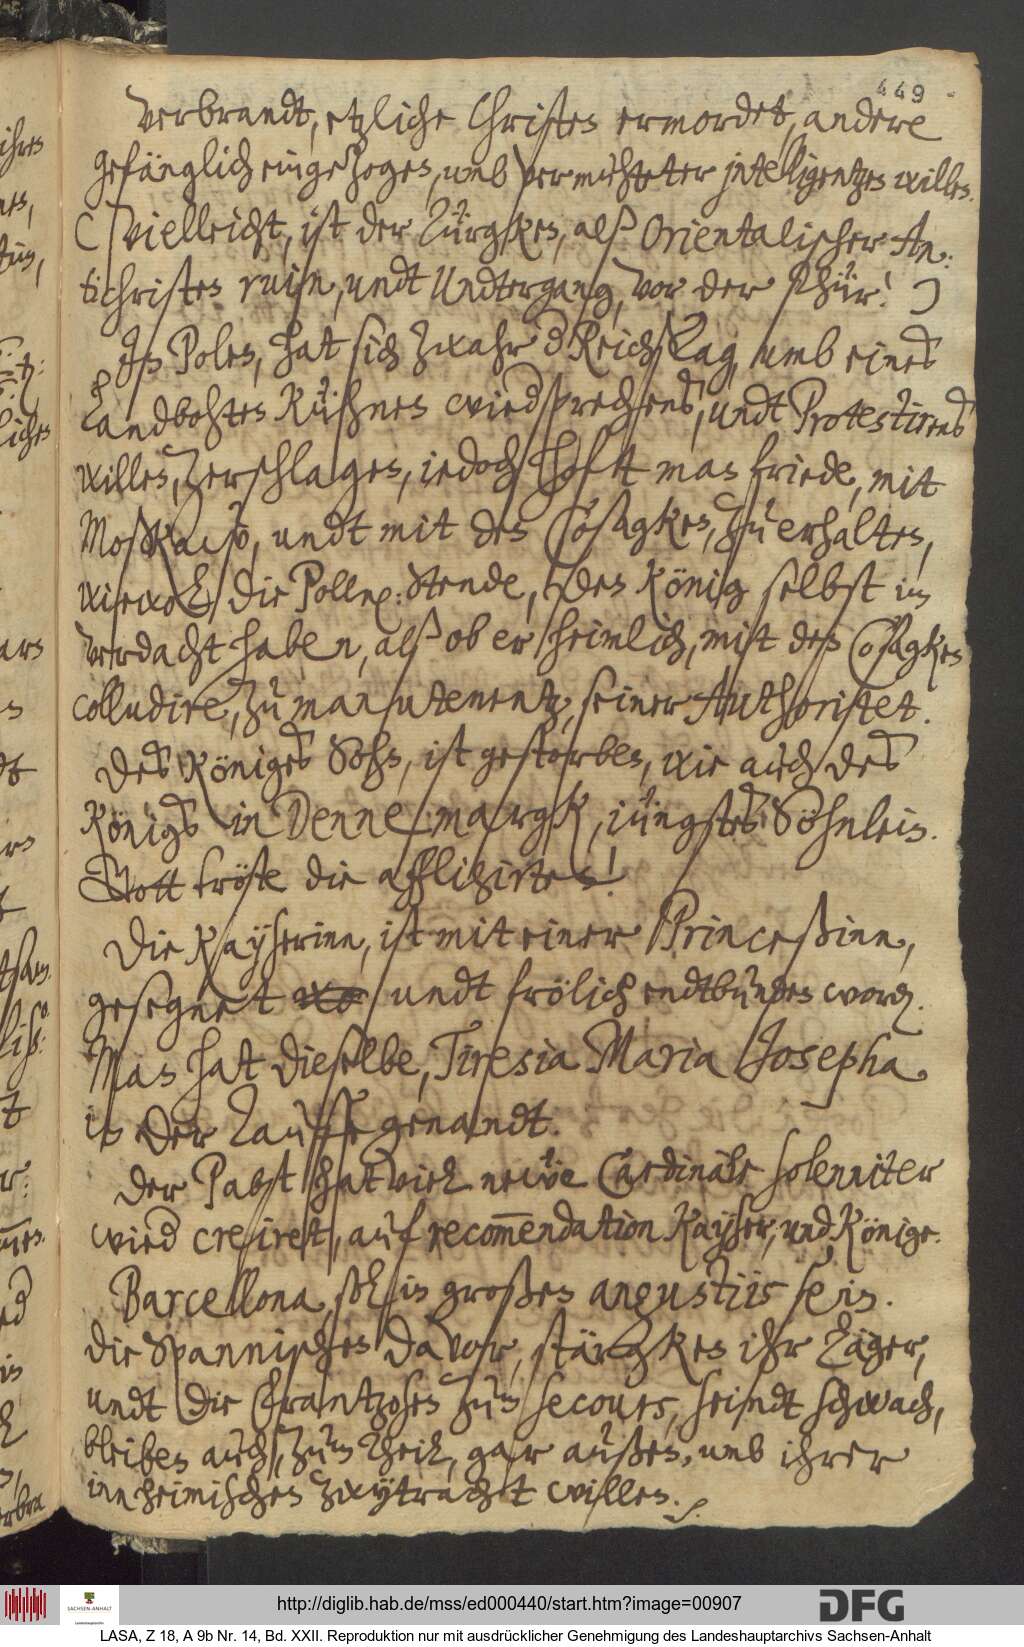 449
verbrandt, etzliche Christen ermordet, andere
gefänglich eingezogen, umb vermuhteter intelligentzen willen.
( Vielleicht, ist der Türgken, alß Orientalischer An:
tichristen ruin, undt Undtergang, vor der Thür! )
In Polen, hat sich zwahr der Reichstag, umb eines
Landbohten Kühnes wiedsprechens, undt Protestirens
willen, zerschlagen, iedoch hoft man friede, mit
Moßkaw, undt mit den Cosagken, zu erhalten,
wiewol die Polln: Stende, den König selbst in
verdacht haben, alß ob er heimlich, mit den Cosagken
colludire, zu manutenentz, seiner Authoritet.
Des Königes Sohn, ist gestorben, wie auch des
Königs in Dennemargk, iüngstes Söhnlein.
Gott tröste die afflicirten!
Die Kayserinn, ist mit einer Princeßinn,
gesegnet undt frölich endtbunden word.
Man hat dieselbe, Tiresia Maria Josepha
in der Tauffe genandt.
Der Pabst hat viel newe Cardinäle solenniter
wied creiret, auf recommendation Kayser, und Könige.
Barcellona, sol in großen angustiis sein.
die Spannischen davor, stärgken ihr Läger,
undt die Frantzosen zum secours, seindt schwach,
bleiben auch, zum theil, gar außen, umb ihrer
innheimischen zwytracht willen.
http://diglib.hab.de/mss/ed000440/start.htm?image=00907
SACHSEN-ANHALT
DFG
LASA, Z 18, A 9b Nr. 14, Bd. XXII. Reproduktion nur mit ausdrücklicher Genehmigung des Landeshauptarchivs Sachsen-Anhalt